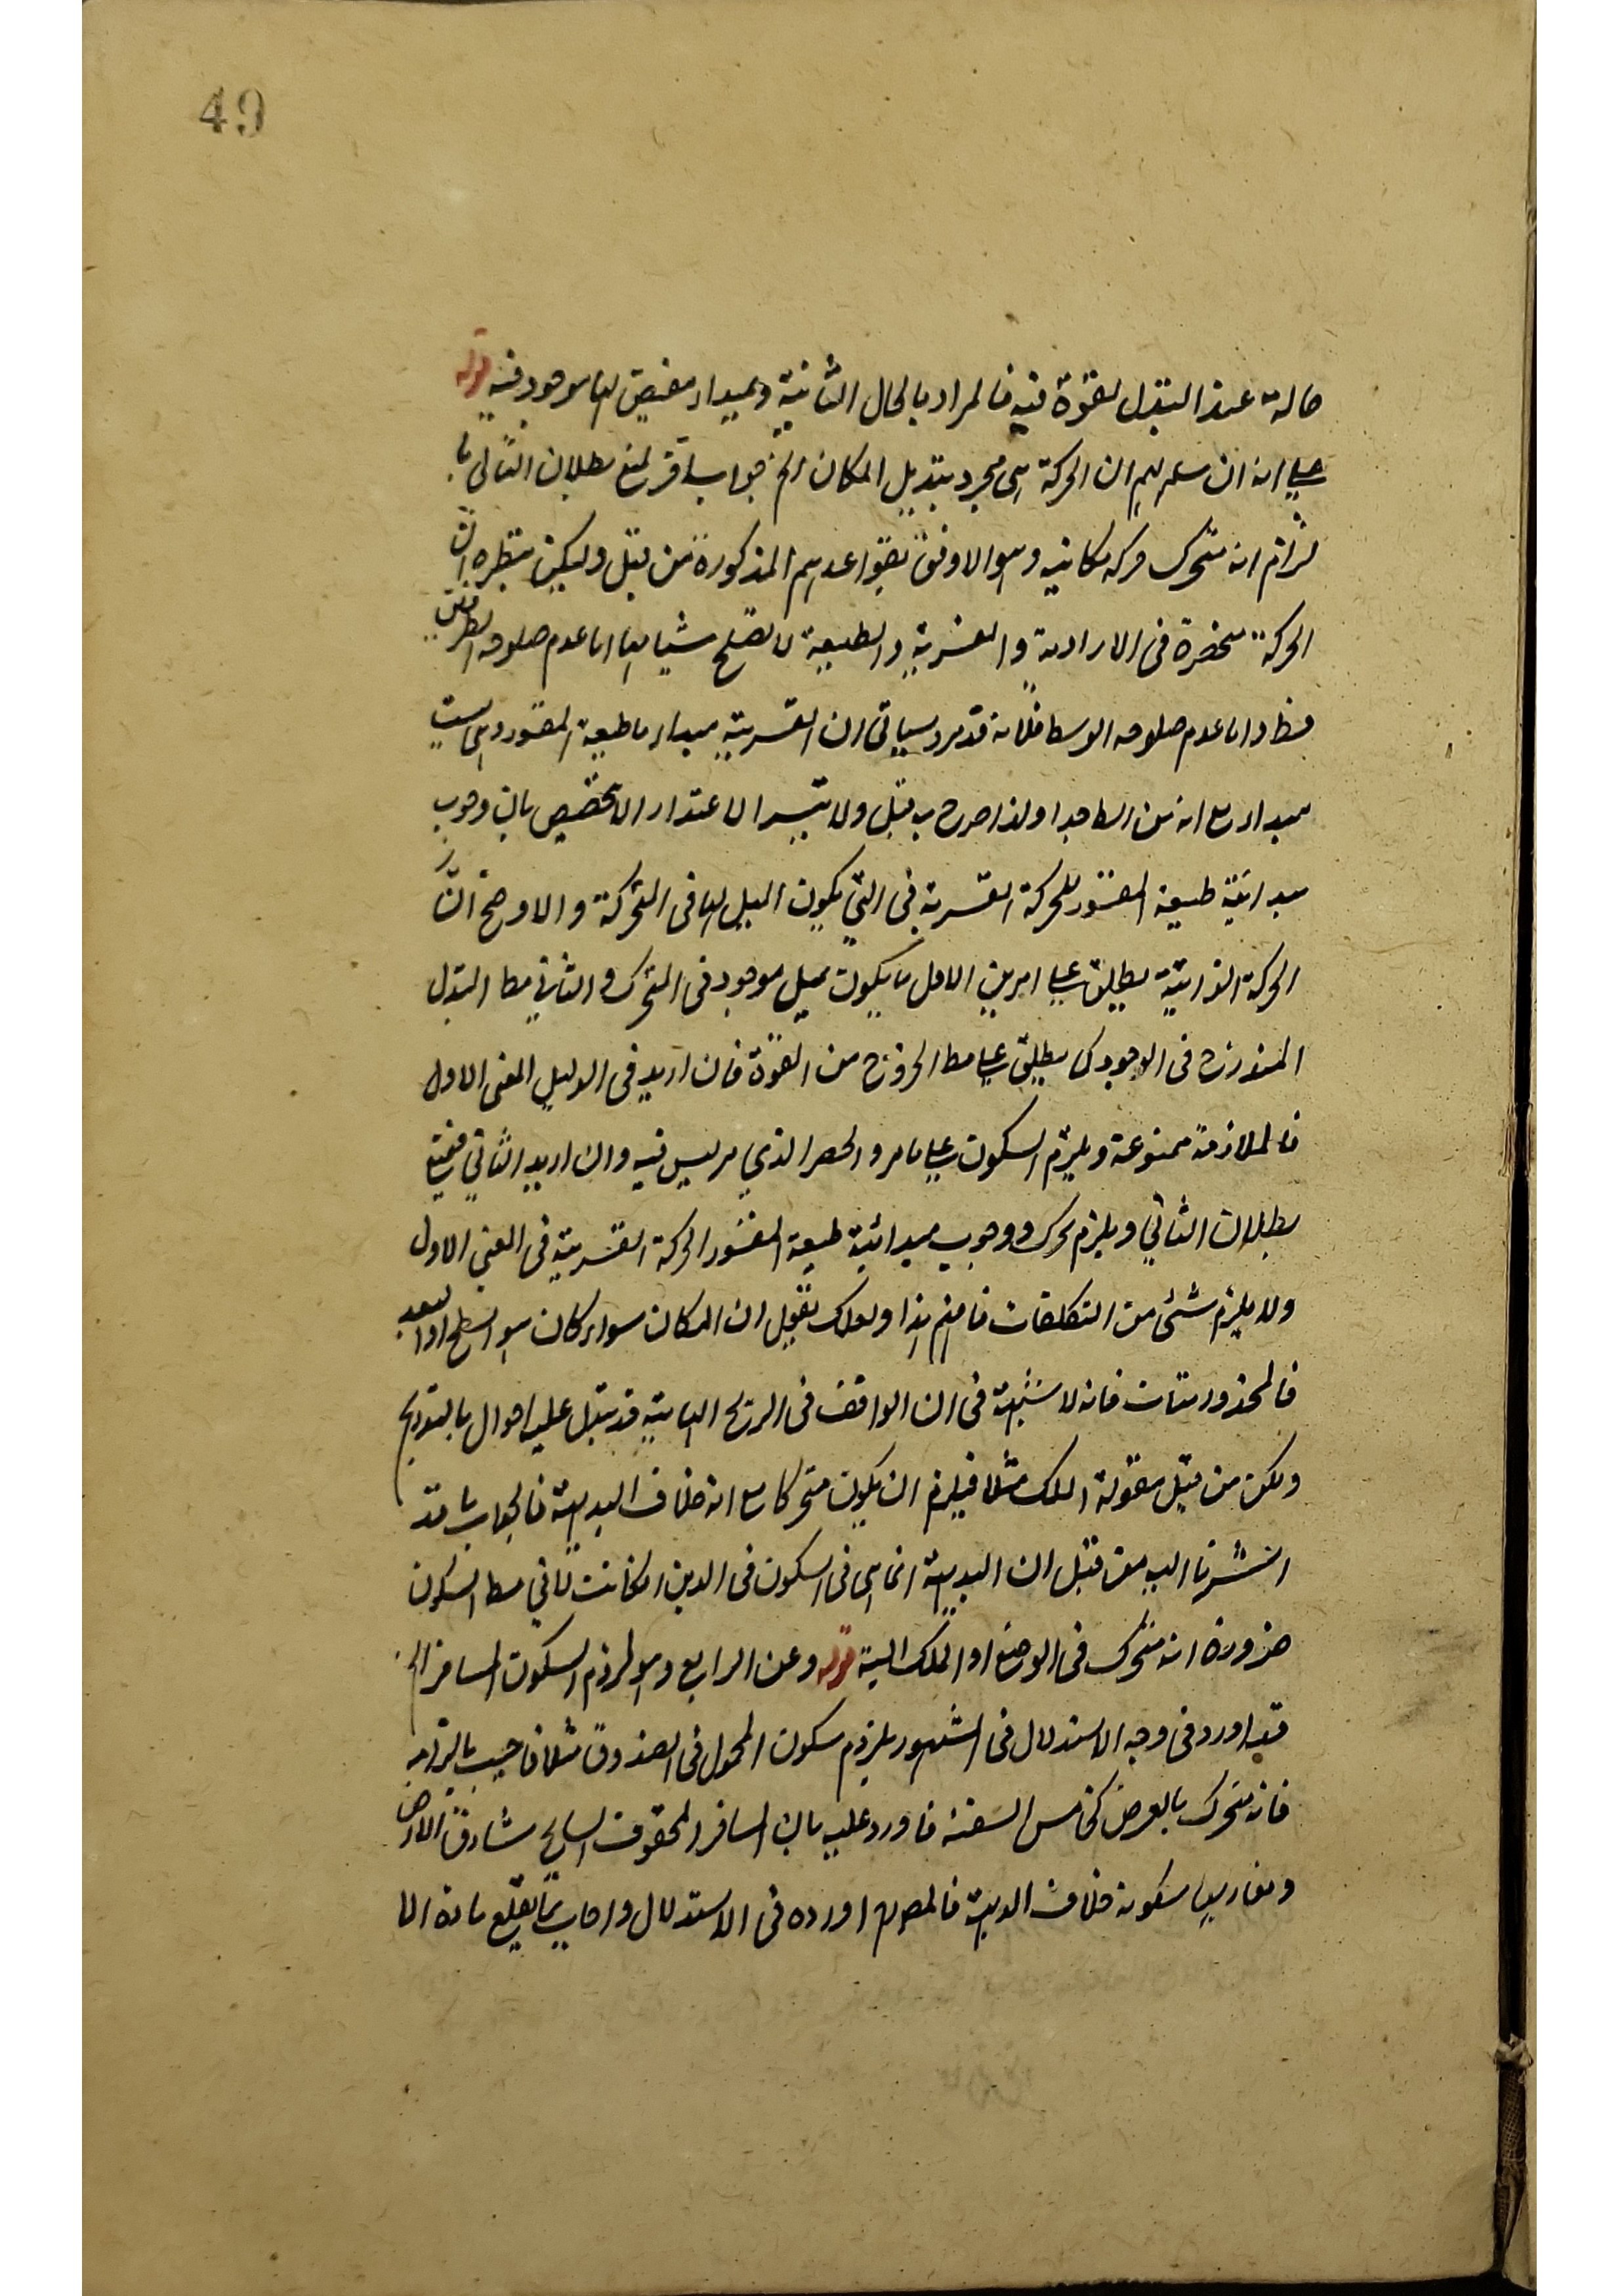 49
حالة عند التبدل لقوة فيه فالمراد بالحال الثانية ومبداء مفيض لها موجود فيه قوله
على انه ان سلم لهم ان الحركة هى مجرد تبديل المكان الخ جواب باقر لمنع بطلان التالى با
لزام انه متحرك حركه مكانيه وهو الاوفق بقواعدهم المذكورة من قبل ولكن ينتظره ان
الحركة منحصرة فى الارادية والقسرية والطبعية لا تصلح شيا لها اما عدم صلوحه الطرفين
فظ واما عدم صلوحه الوسط فلانه قد مر وسياتى ان القسرية مبداء ما طبيعة المقسور وهى ليست
مبداء مع انه من ولذا صرح به قبل ولا يتيسر الاعتذار الا بتخصيص بان وجوب
مبدائية طبيعة المقسور للحركة القسرية فى التى يكون الميل لها فى المتحركة والاوضح ان
الحركة الذاتية يطلق على امرين الاول ما يكون بميل موجود فى المتحرك والثانى مط التبدل
المندرج فى الوجود كما يطلق على مط الخروج من القوة فان اريد فى الدليل المعنى الاول
فالملازمة ممنوعة ويلزم السكون على ما مر والحصر الذي مر ليس فيه وان اريد الثاني فيمنع
بطلان الثاني ويلزم تحرك ووجوب مبدائية طبيعة المقسور الحركة القسرية فى المعنى الاول
ولا يلزم شئ من التكلفات فافهم هذا ولعلك تقول ان المكان سواء كان هو السطح او البعد
فالمحذور متات فانه لا شبهة فى ان الواقف فى الريح الهابة قد تبدل عليه احوال بالتدريج
ولكن من قبل مقولة الملك مثلا فيلزم ان يكون متحركا مع انه خلاف البديهة فالجواب ما قد
اشرنا اليه من قبل ان البديهة انما هى فى السكون فى الاين امكانت لا فى مط السكون
ضرورة انه متحرك فى الوضع او الملك البتة قوله وعن الرابع وهو لزوم السكون المسافر الخ
قد اورد فى وجه الاستدلال فى المشهور بلزوم سكون المحمول فى الصندوق مثلا فاجيب بالتزامه
فانه متحرك بالعرض كجالس السفينة فاورد عليه بان المسافر المحقوف السايح مشارق الارض
ومغاربها سكونه خلاف البديهة فالمصرح اورده فى الاستدلال واجاب بما يقلع مادة الا